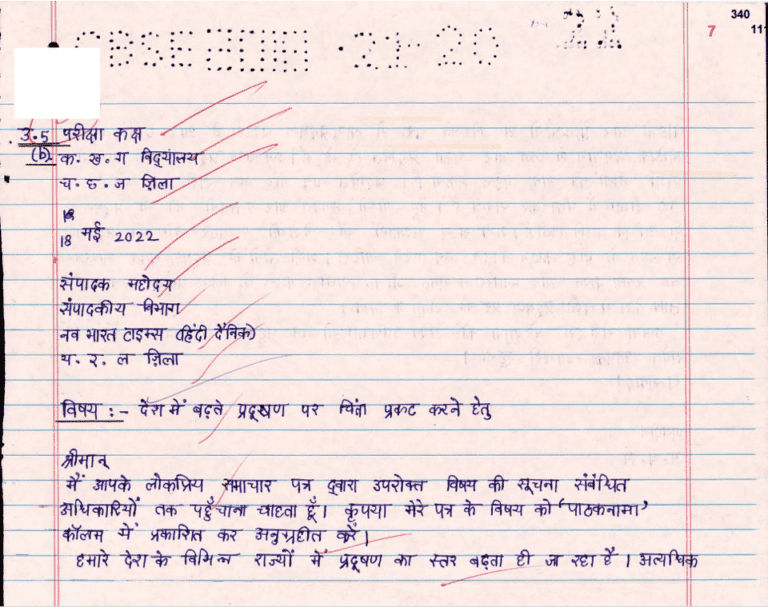 340
7
111
CBSE
21-20
उ.5 परीक्षा कक्ष
(b) क. ख. ग विद्यालय
च. छ. ज ज़िला
18 मई 2022
संपादक महोदय
संपादकीय विभाग
नव भारत टाइम्स (हिंदी दैनिक)
य. र. ल ज़िला
विषय :- देश में बढ़ते प्रदूषण पर चिंता प्रकट करने हेतु
श्रीमान्
मैं आपके लोकप्रिय समाचार पत्र द्वारा उपरोक्त विषय की सूचना संबंधित
अधिकारियों तक पहुँचाना चाहता हूँ। कृपया मेरे पत्र के विषय को 'पाठकनामा'
कॉलम में प्रकाशित कर अनुग्रहीत करें।
हमारे देश के विभिन्न राज्यों में प्रदूषण का स्तर बढ़ता ही जा रहा है। अत्यधिक